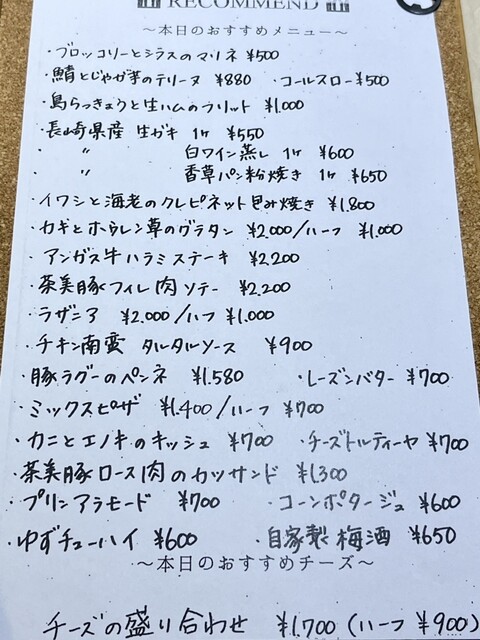 RECOMMEND
～本日のおすすめメニュー～
・ブロッコリーとシラスのマリネ ¥500
・鯖とじゃが芋のテリーヌ ¥880 ・コールスロー ¥500
・島らっきょうと生ハムのフリット ¥1.000
・長崎県産 生ガキ 1ケ ¥550
・ 〃 白ワイン蒸し 1ケ ¥600
・ 〃 香草パン粉焼き 1ケ ¥650
・イワシと海老のクレピネット包み焼き ¥1.800
・カキとホウレン草のグラタン ¥2.000/ハーフ ¥1.000
・アンガス牛ハラミステーキ ¥2.200
・茶美豚フィレ肉ソテー ¥2.200
・ラザニア ¥2.000/ハーフ ¥1.000
・チキン南蛮 タルタルソース ¥900
・豚ラグーのペンネ ¥1.580 ・レーズンバター ¥700
・ミックスピザ ¥1.400/ハーフ ¥700
・カニとエノキのキッシュ ¥700 ・チーズトルティーヤ ¥700
・茶美豚ロース肉のカツサンド ¥1,300
・プリンアラモード ¥700 ・コーンポタージュ ¥600
・ゆずチューハイ ¥600 ・自家製梅酒 ¥650
～本日のおすすめチーズ～
チーズの盛り合わせ ¥1.700 (ハーフ ¥900)